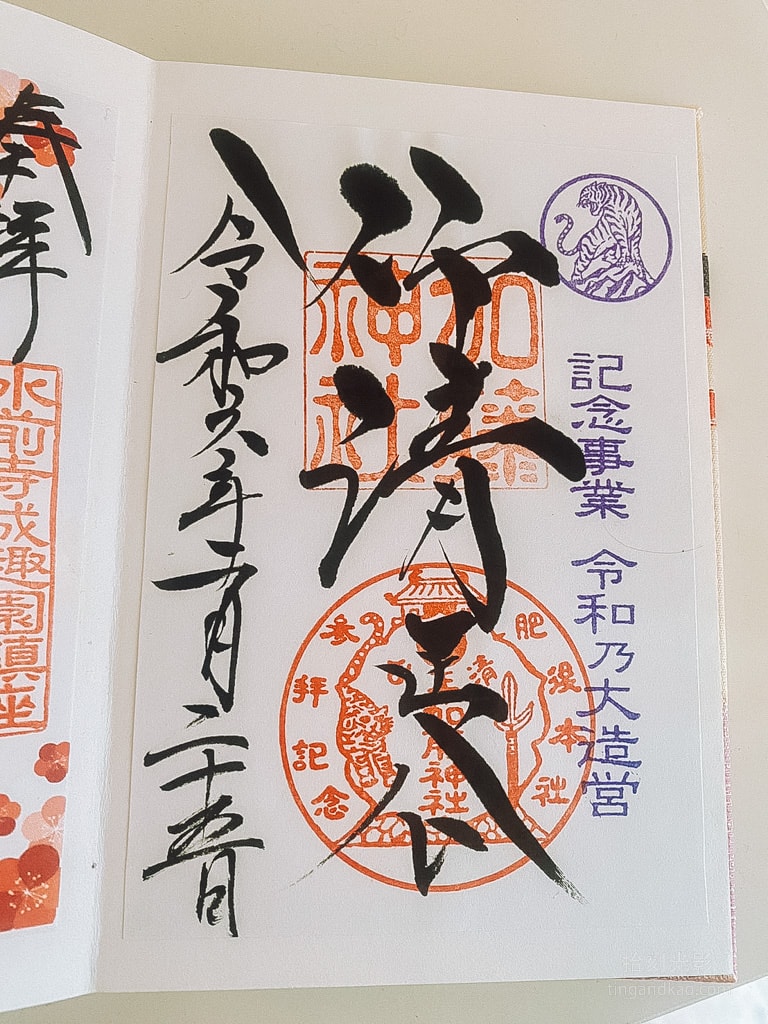 記念事業 令和乃大造営
仰清正公
加藤
神社
肥後本社
清正公
加藤神社
参拝記念
令和六年 月二十五日
奉拝
水前寺成趣園鎮座
tingandkao.com